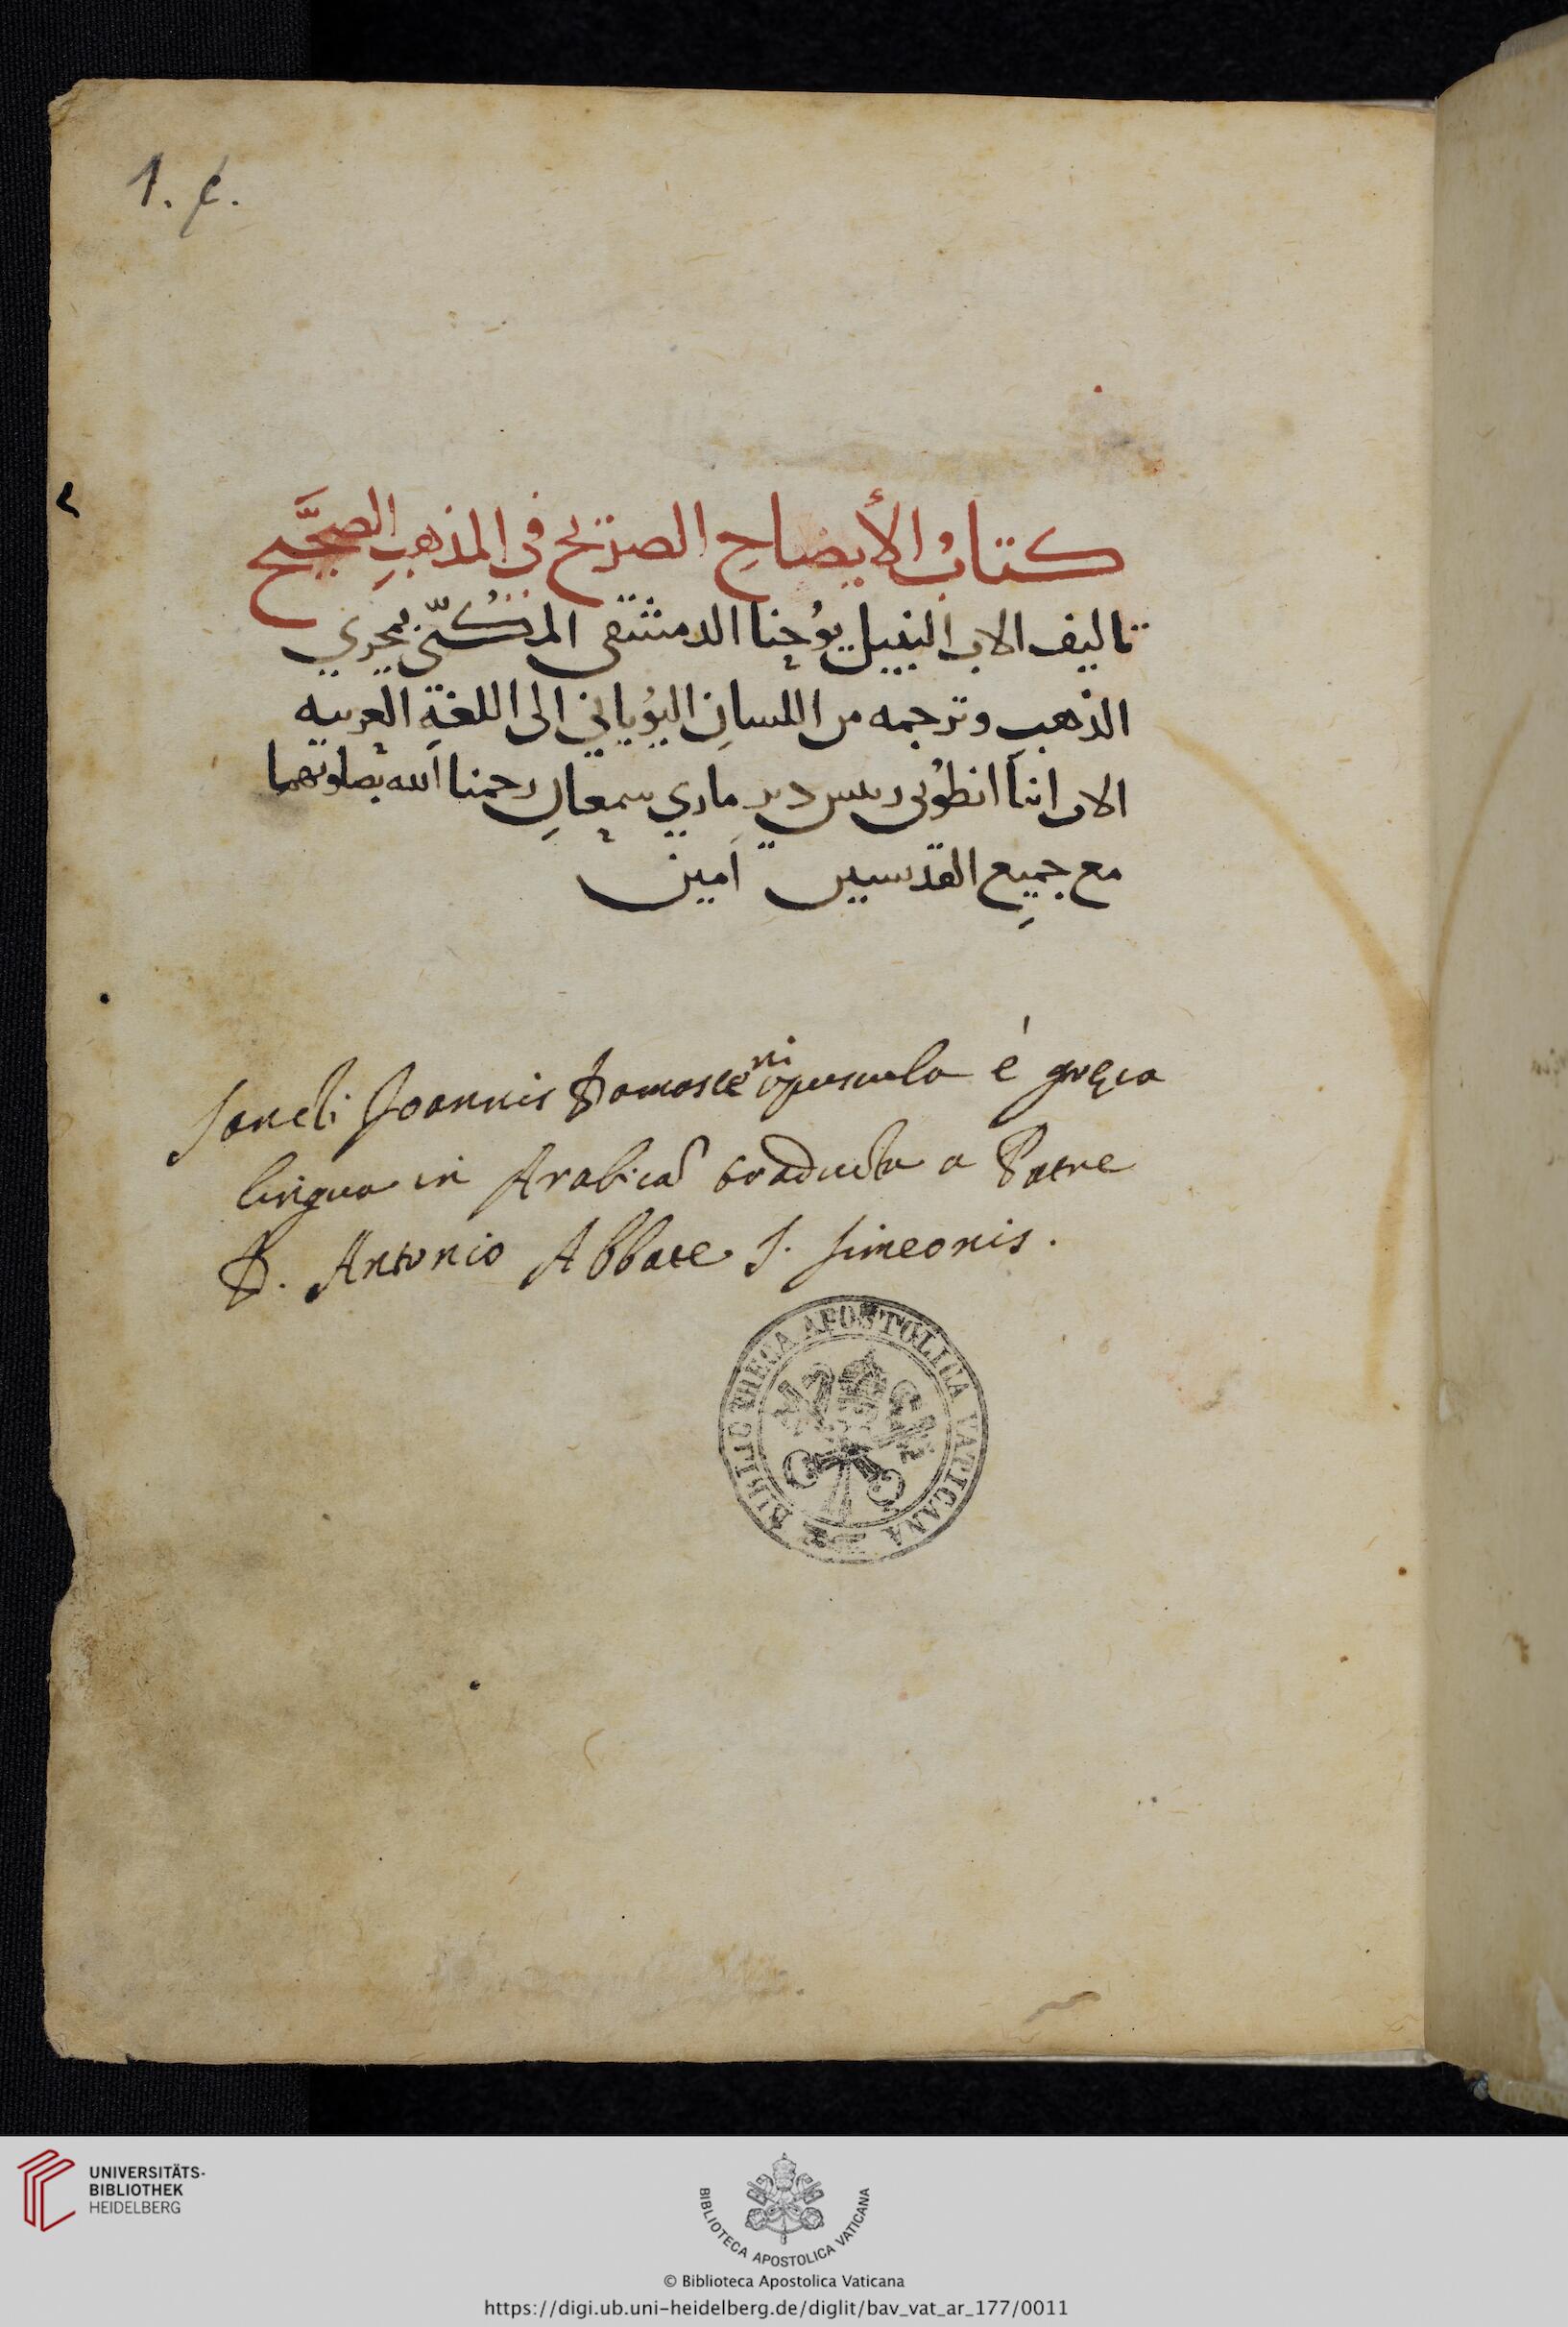 1. c.
كتابُ الأيضاحِ الصريح في المذهبِ الصحَّيح
تاليف الاب النبيل يوُحنا الدمشقى المكُنّى بمجري
الذهبِ وترجمه من اللسانِ اليوُناني الى اللغةِ العربيه
الاب انبا انطوُنى رييس دير ماري سمعانِ رحمنا الله بصلوتهما
مع جميِع القديسين امين
Sancti Joannis Damasceni opuscula è gręca
lingua in Arabicã traducta a Patre
D. Antonio Abbate S. Simeonis.
BIBLIOTHECA APOSTOLICA VATICANA
UNIVERSITÄTS-
BIBLIOTHEK
HEIDELBERG
BIBLIOTECA APOSTOLICA VATICANA
© Biblioteca Apostolica Vaticana
https://digi.ub.uni-heidelberg.de/diglit/bav_vat_ar_177/0011